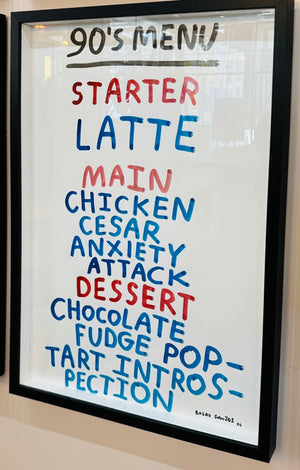 90's MENU
STARTER
LATTE
MAIN
CHICKEN
CESAR
ANXIETY
ATTACK
DESSERT
CHOCOLATE
FUDGE POP-
TART INTROS-
PECTION